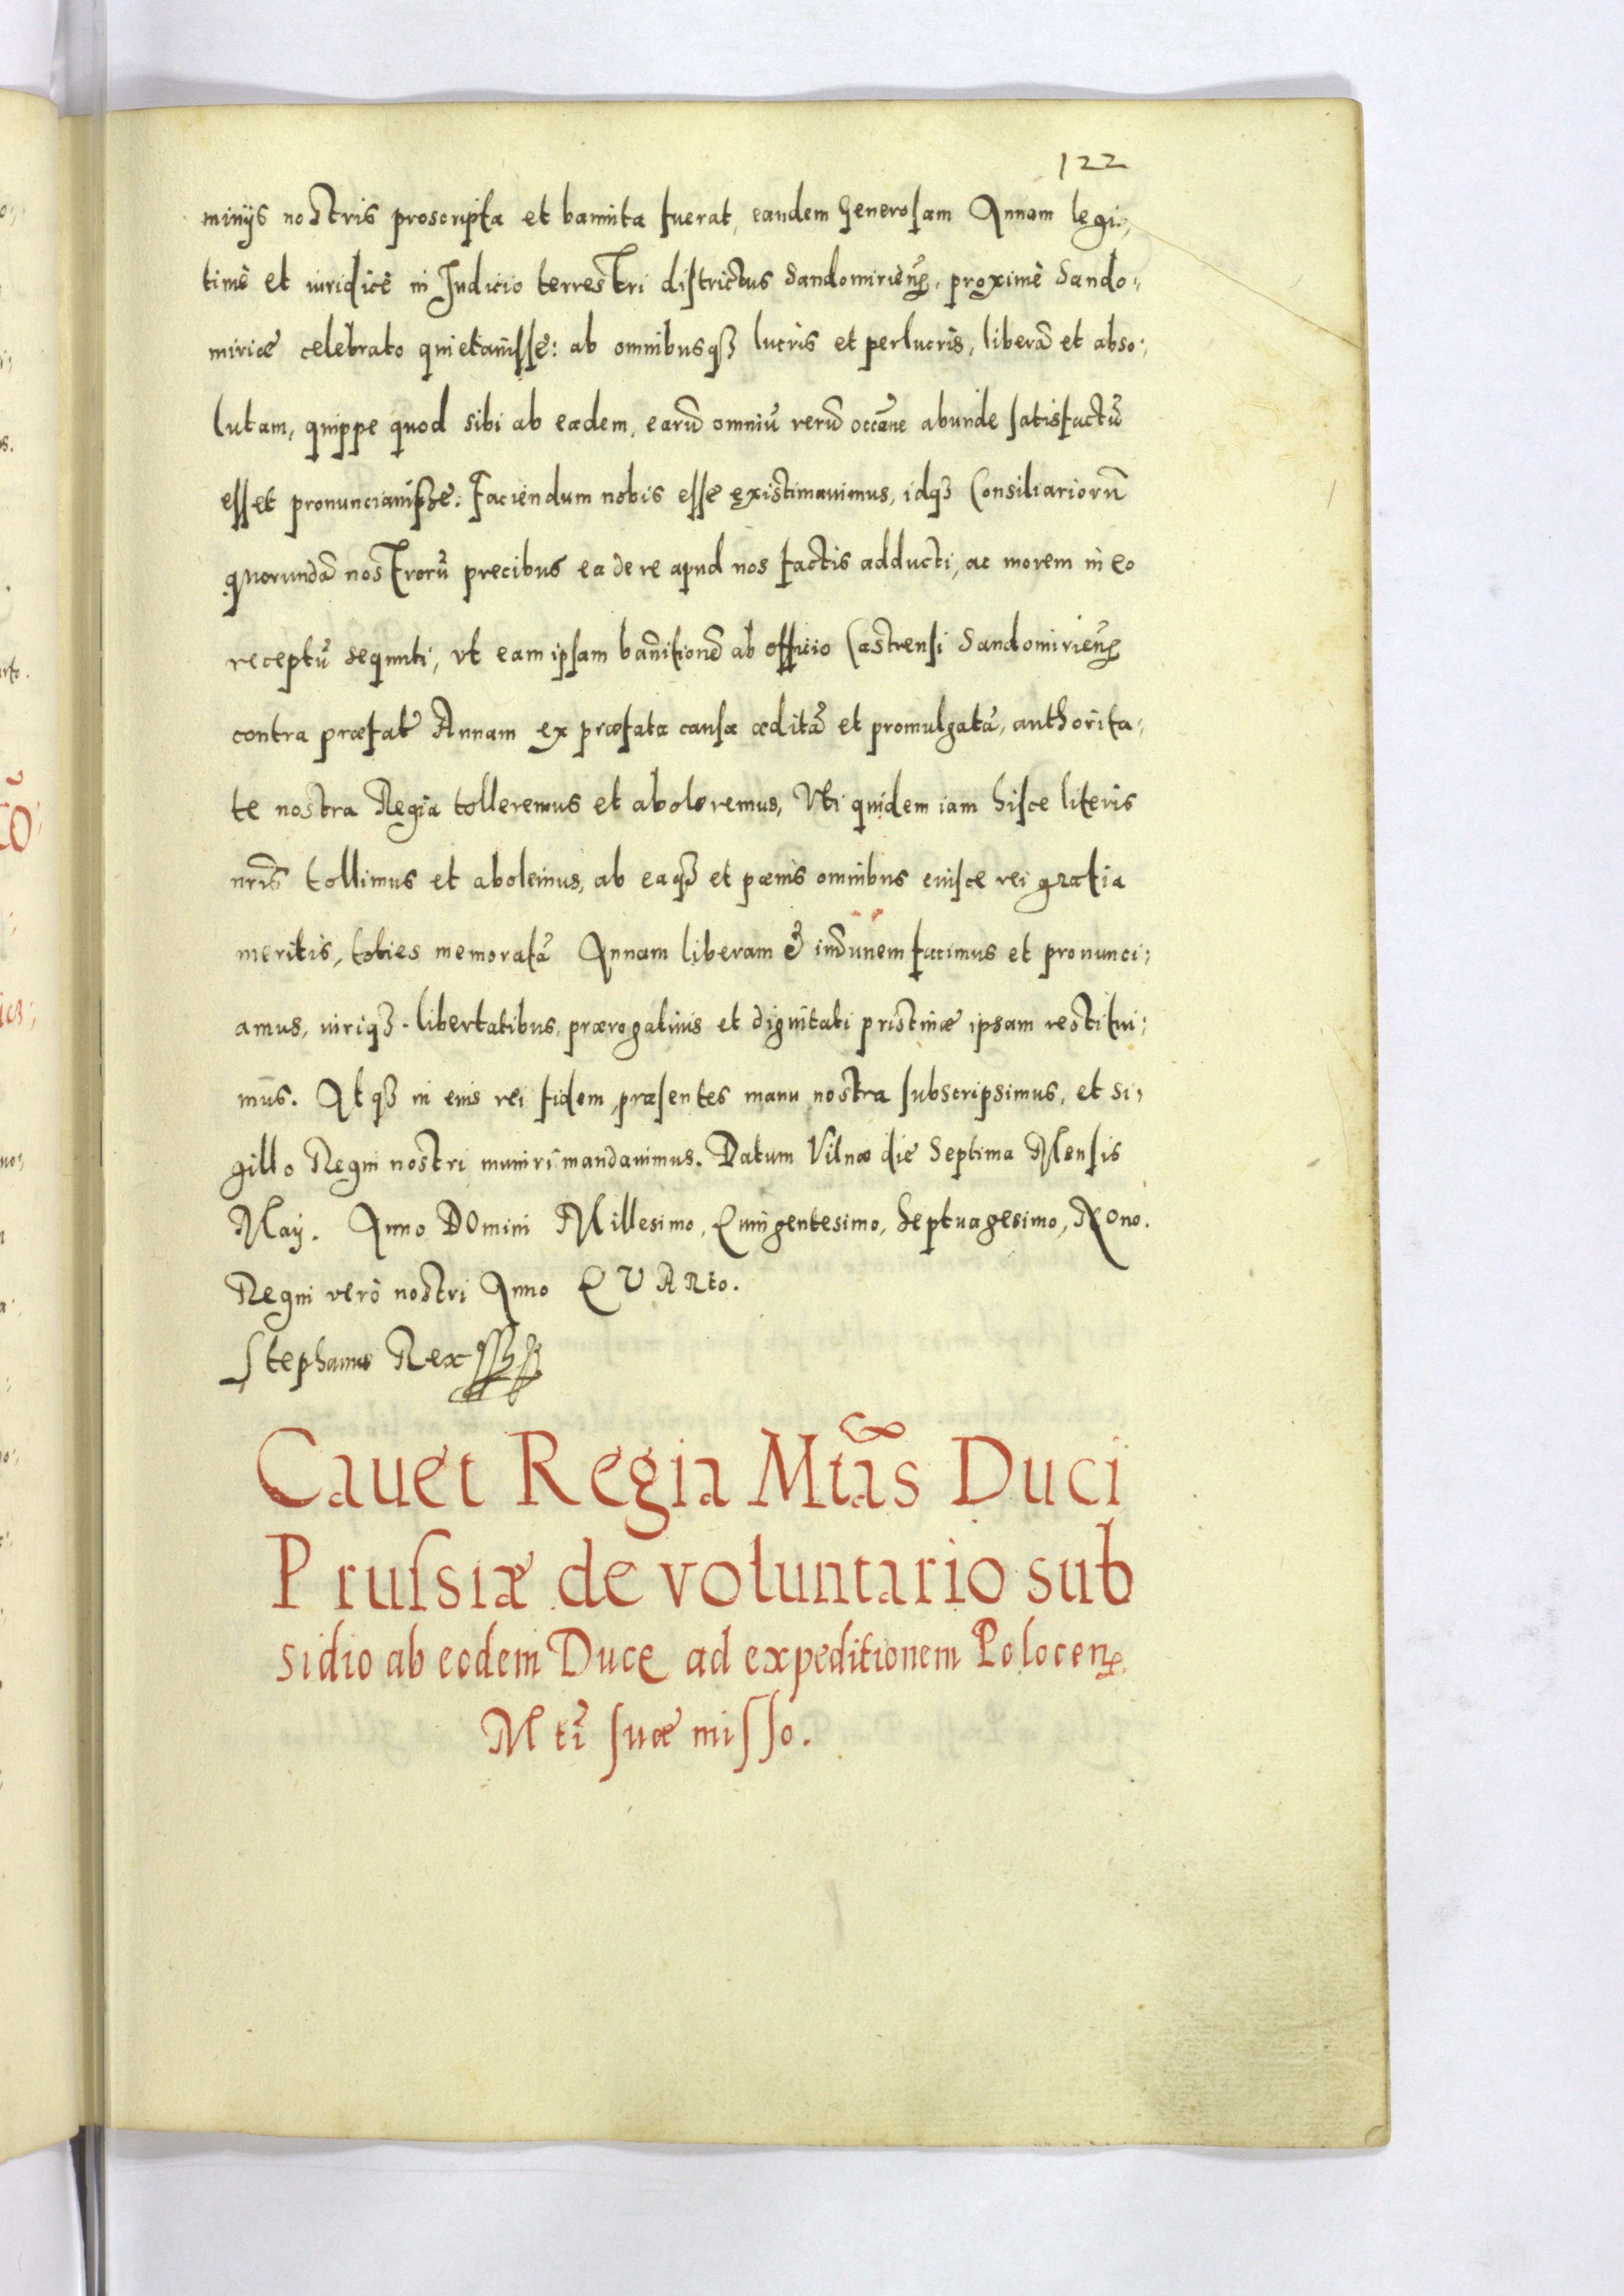 122
minijs nostris proscripta et bannita fuerat, eandem generosam Annam legi:,
timè et iuridicè in Judicio terrestri districtus Sandomirieñ, proximè Sando,
miriæ celebrato quietauisse: ab omnibusqꝫ lucris et perlucris, liberã et abso:,
lutam, quippe quod sibi ab eadem, earũ omniũ rerũ occãne abunde satisfactũ
esset pronunciauisse: Faciendum nobis esse existimauimus, idqꝫ Consiliariorũ
quorundã nostrorũ precibus ea de re apud nos factis adducti, ac morem in eo
receptũ sequuti, vt eam ipsam bañitionẽ ab officio Castrensi Sandomirieñ
contra præfat̃ Annam ex præfata causa æditã et promulgatã, authorita,
te nostra Regia tolleremus et aboleremus, Vti quidem iam hisce literis
nr̃is tollimus et abolemus, ab eaqꝫ et pœnis omnibus euisce rei gratia
meritis, toties memoratã Annam liberam & im̃unem facimus et pronunci:
amus, iuriqꝫ libertatibus, prærogatiuis et dignitati pristinæ ipsam restitui:
mus. Atqꝫ in eius rei fidem præsentes manu nostra subscripsimus, et si,
gillo Regni nostri muniri mandauimus. Datum Vilnæ die Septima Mensis
Maij. Anno DOmini Millesimo, Quingentesimo, Septuagesimo, Nono.
Regni verò nostri Anno QVARto.
Stephanus Rex
Cauet Regia Mtãs Duci
Prussiæ de voluntario sub
sidio ab eodem Duce ad expeditionem Polocen̄
Mtĩ suæ misso.